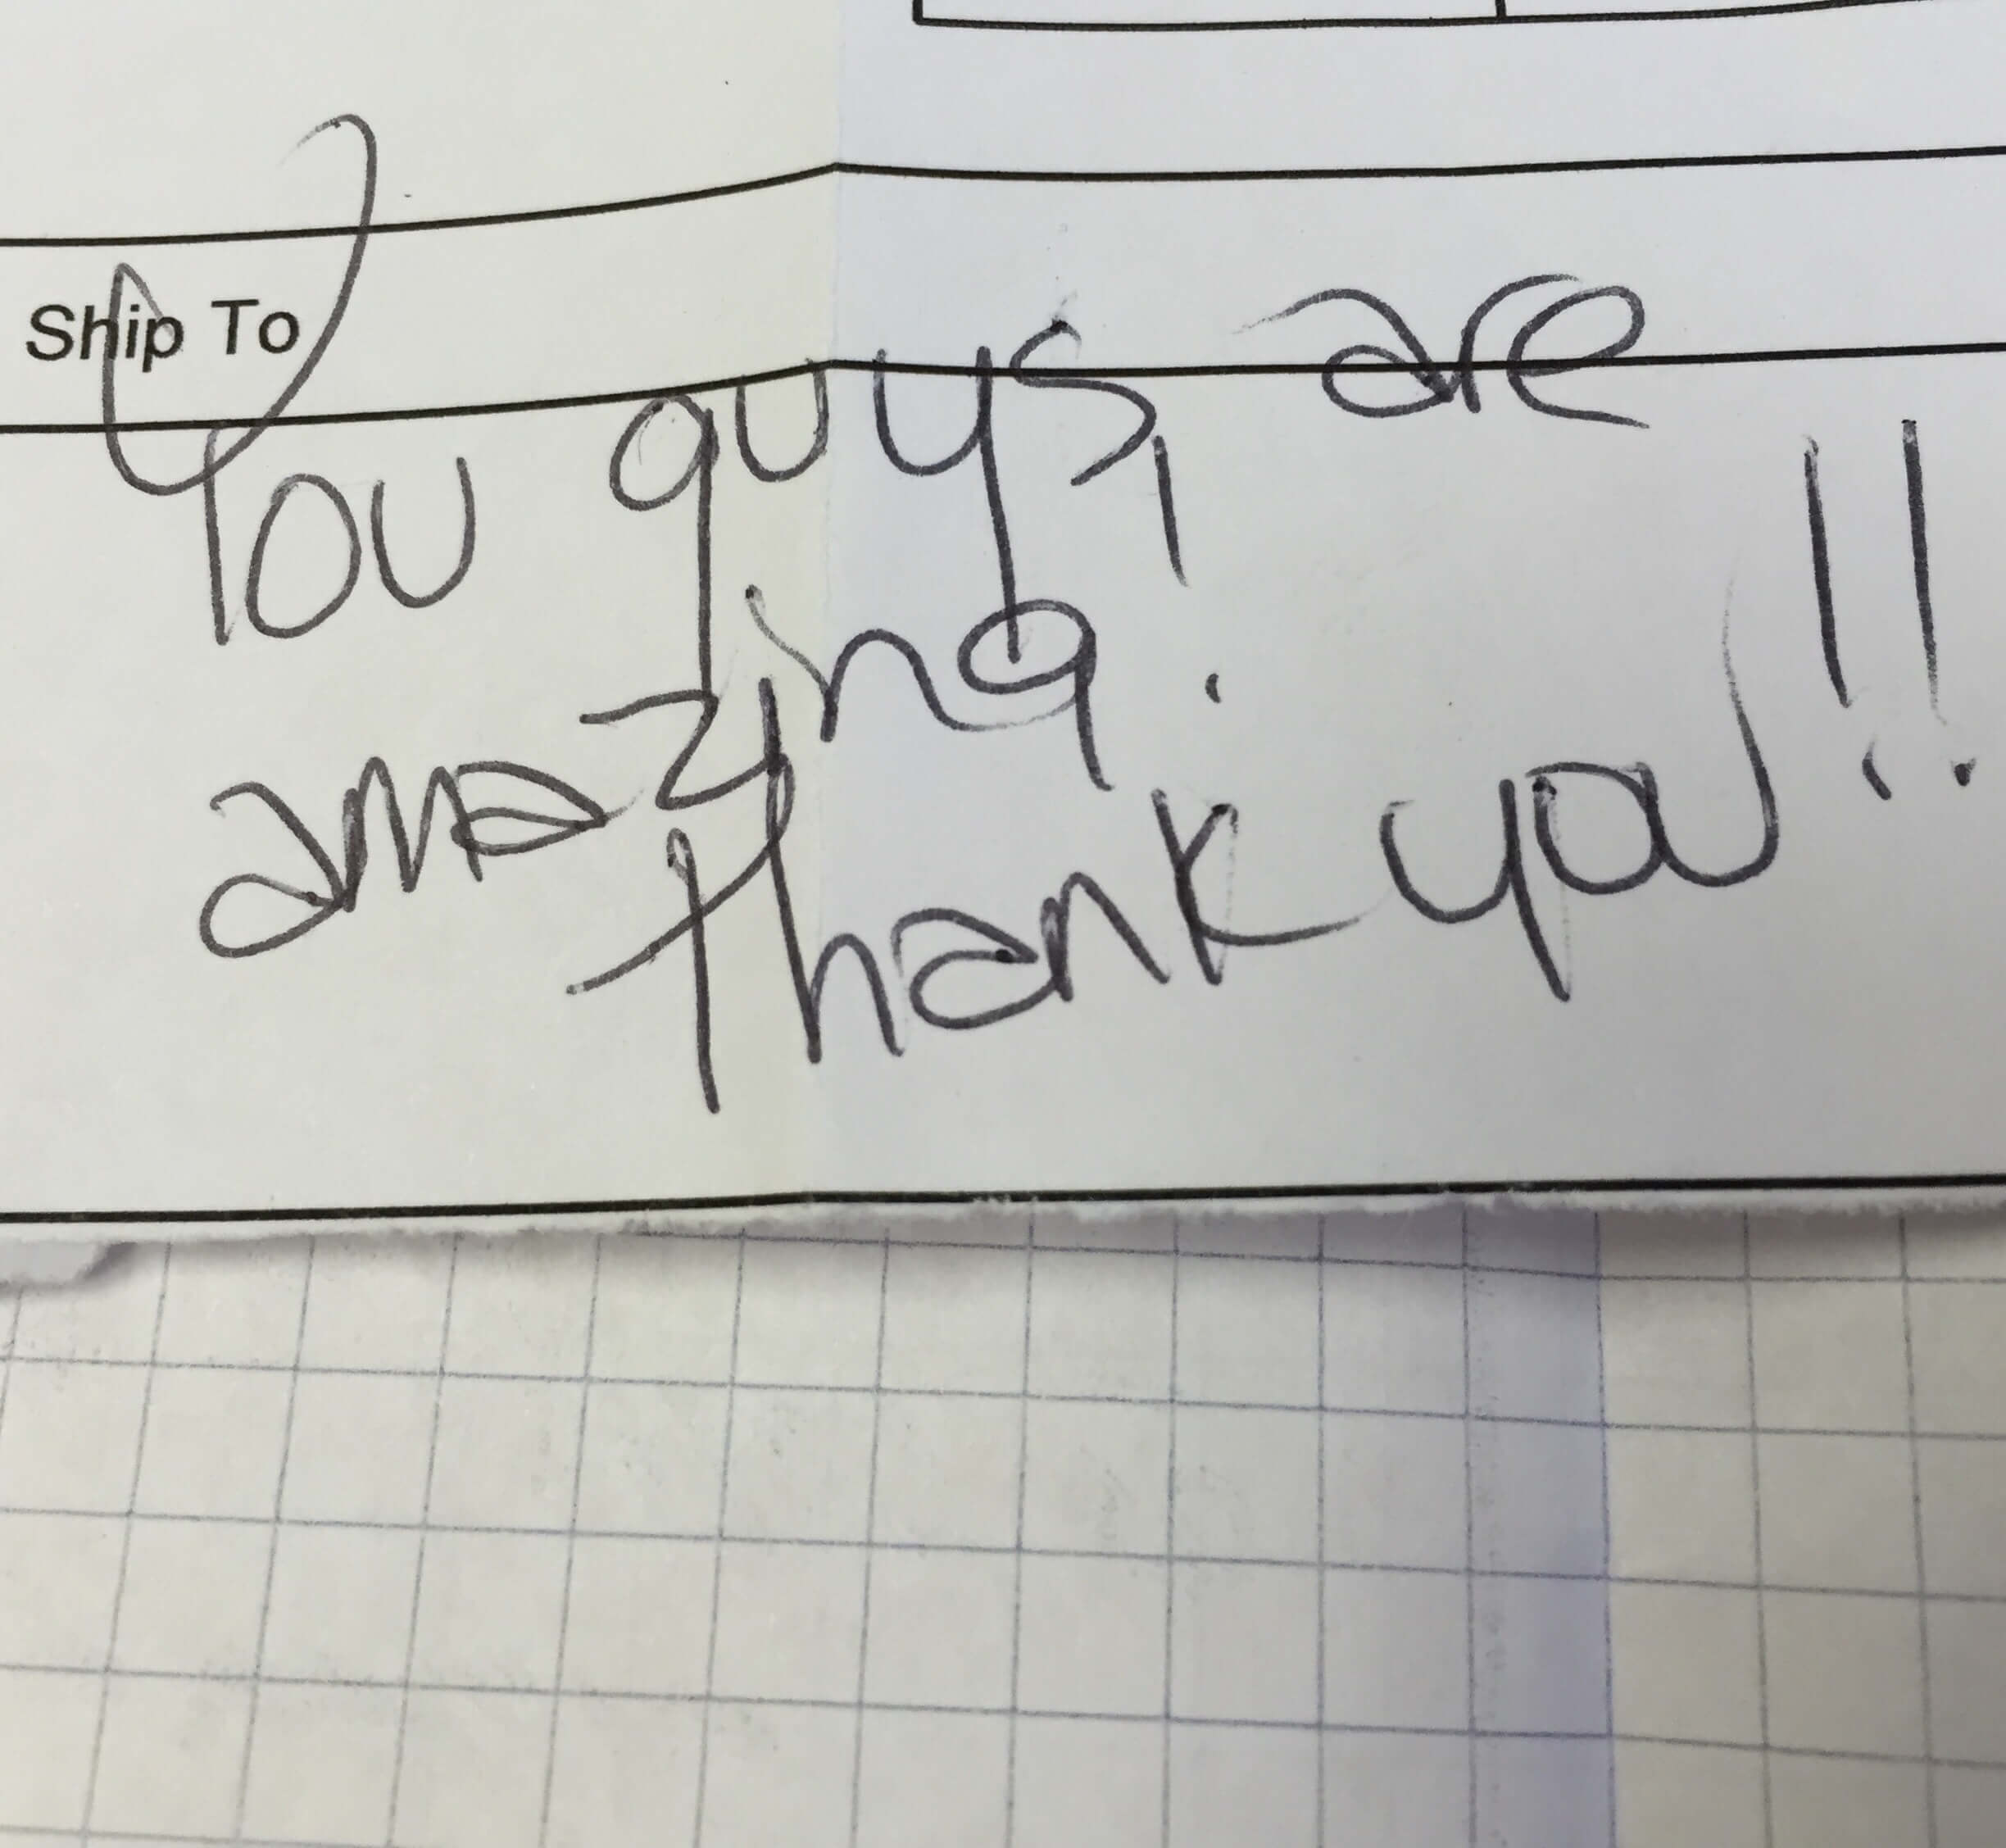 Ship To
You guys are
amazing!
Thank you!!